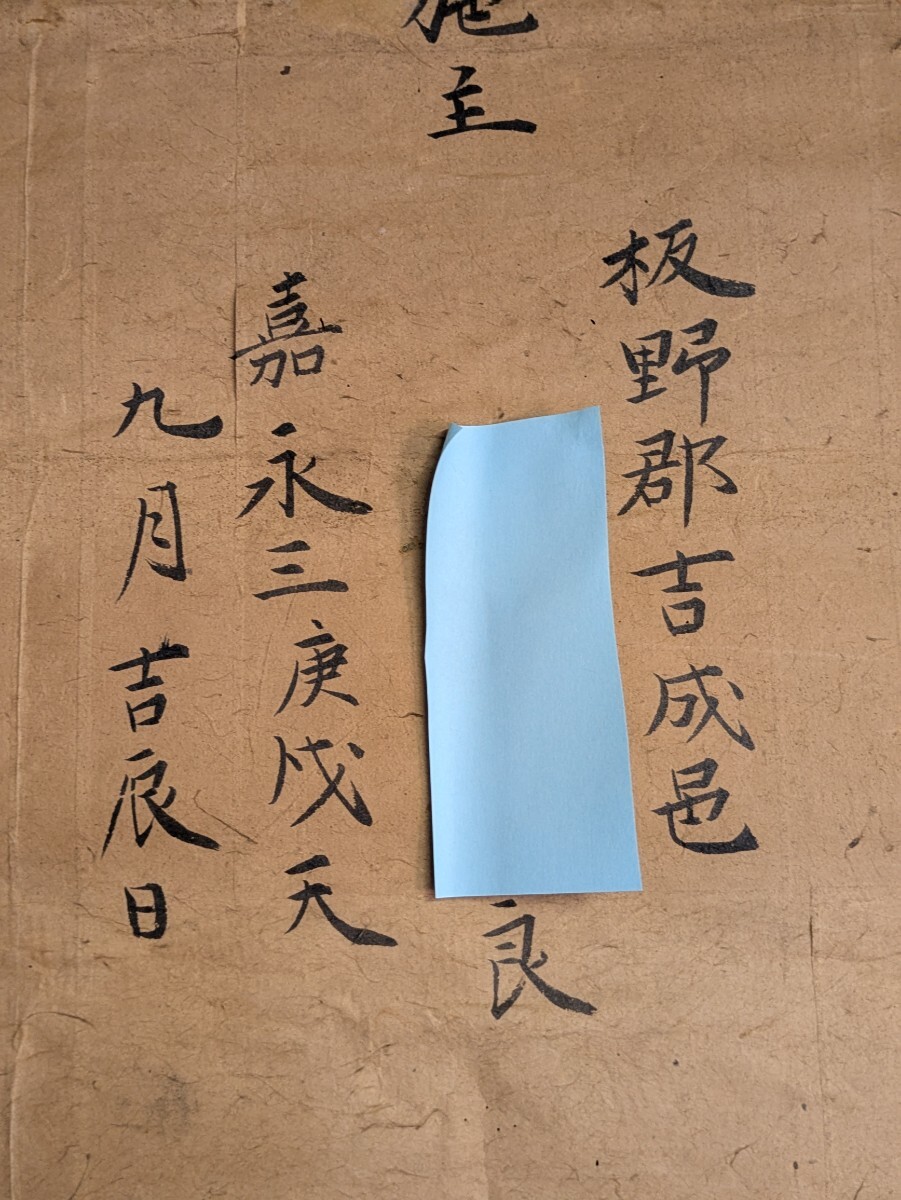 施主
板野郡吉成邑
良
嘉永三庚戌天
九月吉辰日